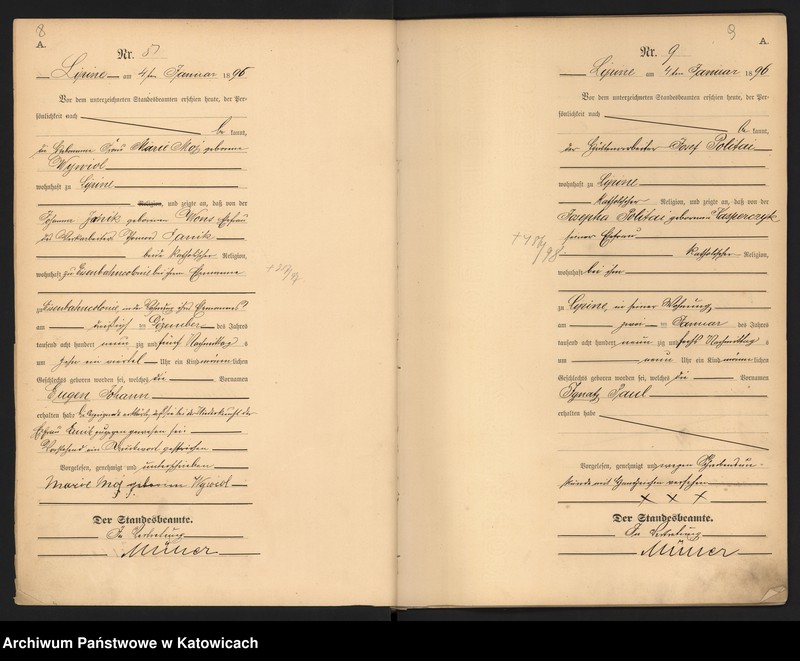 8
A.
Nr.
Lipine am 4ten Januar 1896
Vor dem unterzeichneten Standesbeamten erschien heute, der Per-
sönlichkeit nach
be kannt,
die Hebamme Frau Marie Moj geborene
Wywiol
wohnhaft zu Lipine
Religion, und zeigte an, daß von der
Johanna Janik geborenen Wons, Ehefrau
des Thomas Janik
beide katholischer Religion,
wohnhaft zu Eisenbahncolonie bei ihrem Ehemanne
zu Eisenbahncolonie, in der Wohnung ihres Ehemannes
am dreißigsten Dezember des Jahres
tausend acht hundert neunzig und fünf Nachmittags
um zehn ein viertel Uhr ein Kind männlichen
Geschlechts geboren worden sei, welches die Vornamen
Eugen Johann
erhalten habe
Ehefrau Janik zugegen gewesen sei.
Vorstehend ein Druckwort gestrichen
Vorgelesen, genehmigt und unterschrieben
Marie Moj geborene Wywiol
Der Standesbeamte.
In Vertretung
Müller
9
A.
Nr. 9
Lipine am 4ten Januar 1896
Vor dem unterzeichneten Standesbeamten erschien heute, der Per-
sönlichkeit nach
be kannt,
der Hüttenarbeiter Josef Politai
wohnhaft zu Lipine
katholischer Religion, und zeigte an, daß von der
Josepha Politai geborenen Kasperczyk
seiner Ehefrau
katholischer Religion,
wohnhaft bei ihm
zu Lipine, in seiner Wohnung
am zwei ten Januar des Jahres
tausend acht hundert neunzig und sechs Nachmittags
um neun Uhr ein Kind männlichen
Geschlechts geboren worden sei, welches die Vornamen
Ignatz Paul
erhalten habe
Vorgelesen, genehmigt und wegen Schreibensun-
kunde mit Handzeichen versehen
X X X
Der Standesbeamte.
In Vertretung
Müller
Archiwum Państwowe w Katowicach